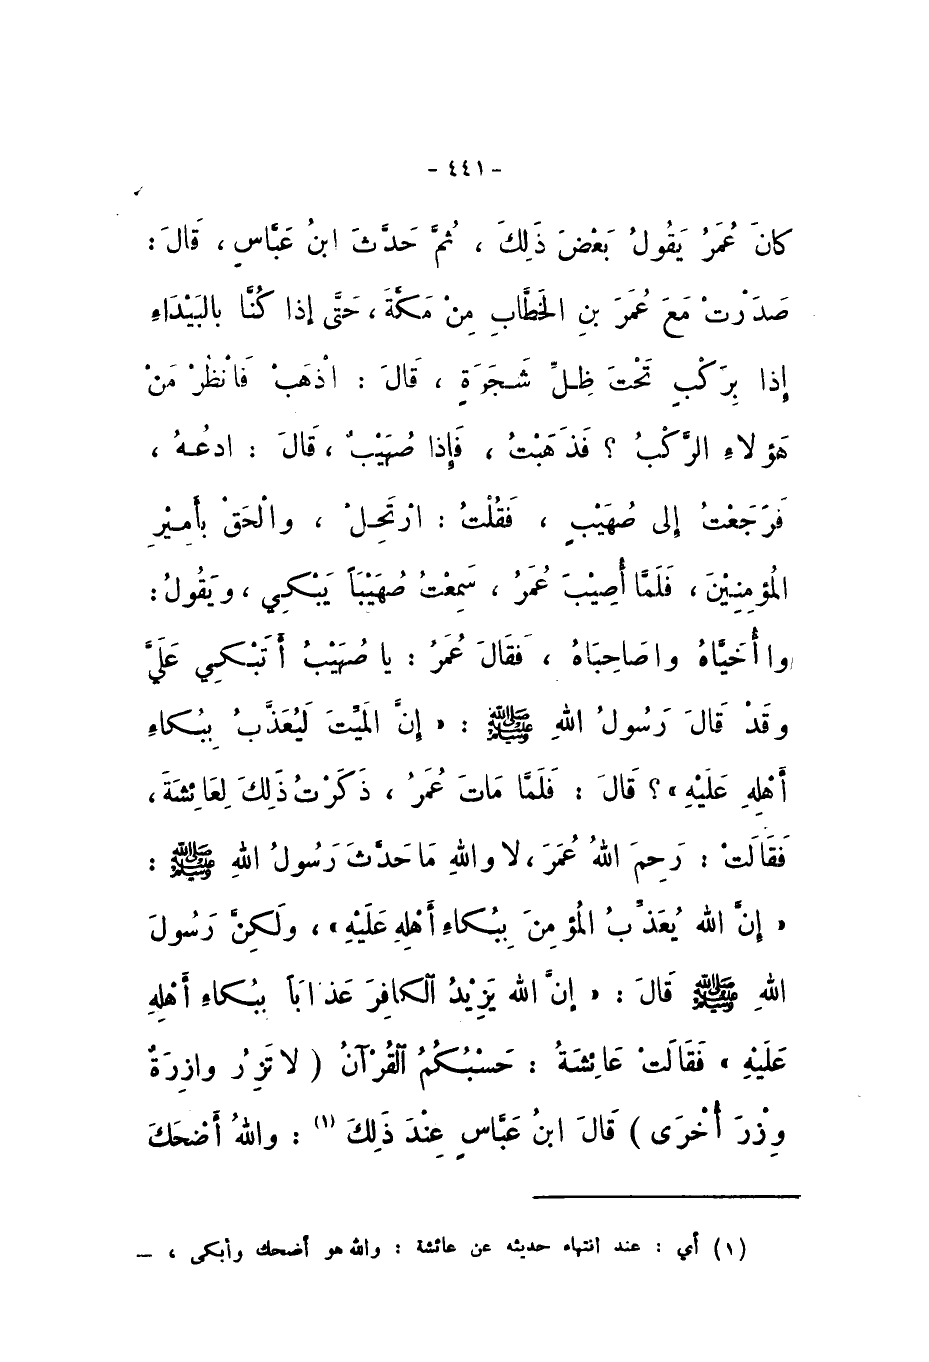 - ٤٤١ -
كانَ عُمَرُ يَقُولُ بَعْضَ ذَلِكَ ، ثُمَّ حَدَّثَ ابنُ عَبَّاسٍ ، قَالَ :
صَدَرْتُ مَعَ عُمَرَ بنِ الخَطَّابِ مِنْ مَكَّةَ ، حَتَّى إذا كُنَّا بالبَيْدَاءِ
إذا بِرَكْبٍ تَحْتَ ظِلِّ شَجَرَةٍ ، قَالَ : اذْهَبْ فَانْظُرْ مَنْ
هَؤلاءِ الرَّكْبُ ؟ فَذَهَبْتُ ، فَإِذا صُهَيْبٌ ، قَالَ : ادعُهُ ،
فَرَجَعْتُ إلى صُهَيْبٍ ، فَقُلْتُ : ارْتَحِلْ ، والْحَقْ بأَمِيْرِ
المُؤمِنِيْنَ ، فَلَمَّا أُصِيْبَ عُمَرُ ، سَمِعْتُ صُهَيْبَاً يَبْكي ، ويَقُولُ :
وا أُخَيَّاهُ واصَاحِبَاهُ ، فَقَالَ عُمَرُ : يا صُهَيْبُ أَتَبْكي عَلَيَّ
وقَدْ قَالَ رَسُولُ اللهِ ﷺ : « إنَّ المَيِّتَ لَيُعَذَّبُ بِبُكاءِ
أَهْلِهِ عَلَيْهِ » ؟ قَالَ : فَلَمَّا مَاتَ عُمَرُ ، ذَكَرْتُ ذَلِكَ لِعَائِشَةَ ،
فَقَالَتْ : رَحِمَ اللهُ عُمَرَ ، لا واللهِ مَا حَدَّثَ رَسُولُ اللهِ ﷺ :
« إنَّ الله يُعَذِّبُ المُؤمِنَ بِبُكاءِ أَهْلِهِ عَلَيْهِ » ، ولَكِنَّ رَسُولَ
اللهِ ﷺ قَالَ : « إنَّ الله يَزِيْدُ الكافِرَ عَذابَاً بِبُكاءِ أَهْلِهِ
عَلَيْهِ » فَقَالَتْ عَائِشَةُ : حَسْبُكُمُ القُرْآنُ ( لا تَزِرُ وازِرَةٌ
وِزْرَ أُخْرَى ) قَالَ ابنُ عَبَّاسٍ عِنْدَ ذَلِكَ (١) : واللهُ أَضْحَكَ
(١) أي : عند انتهاء حديثه عن عائشة : والله هو أضحك وأبكى ، –